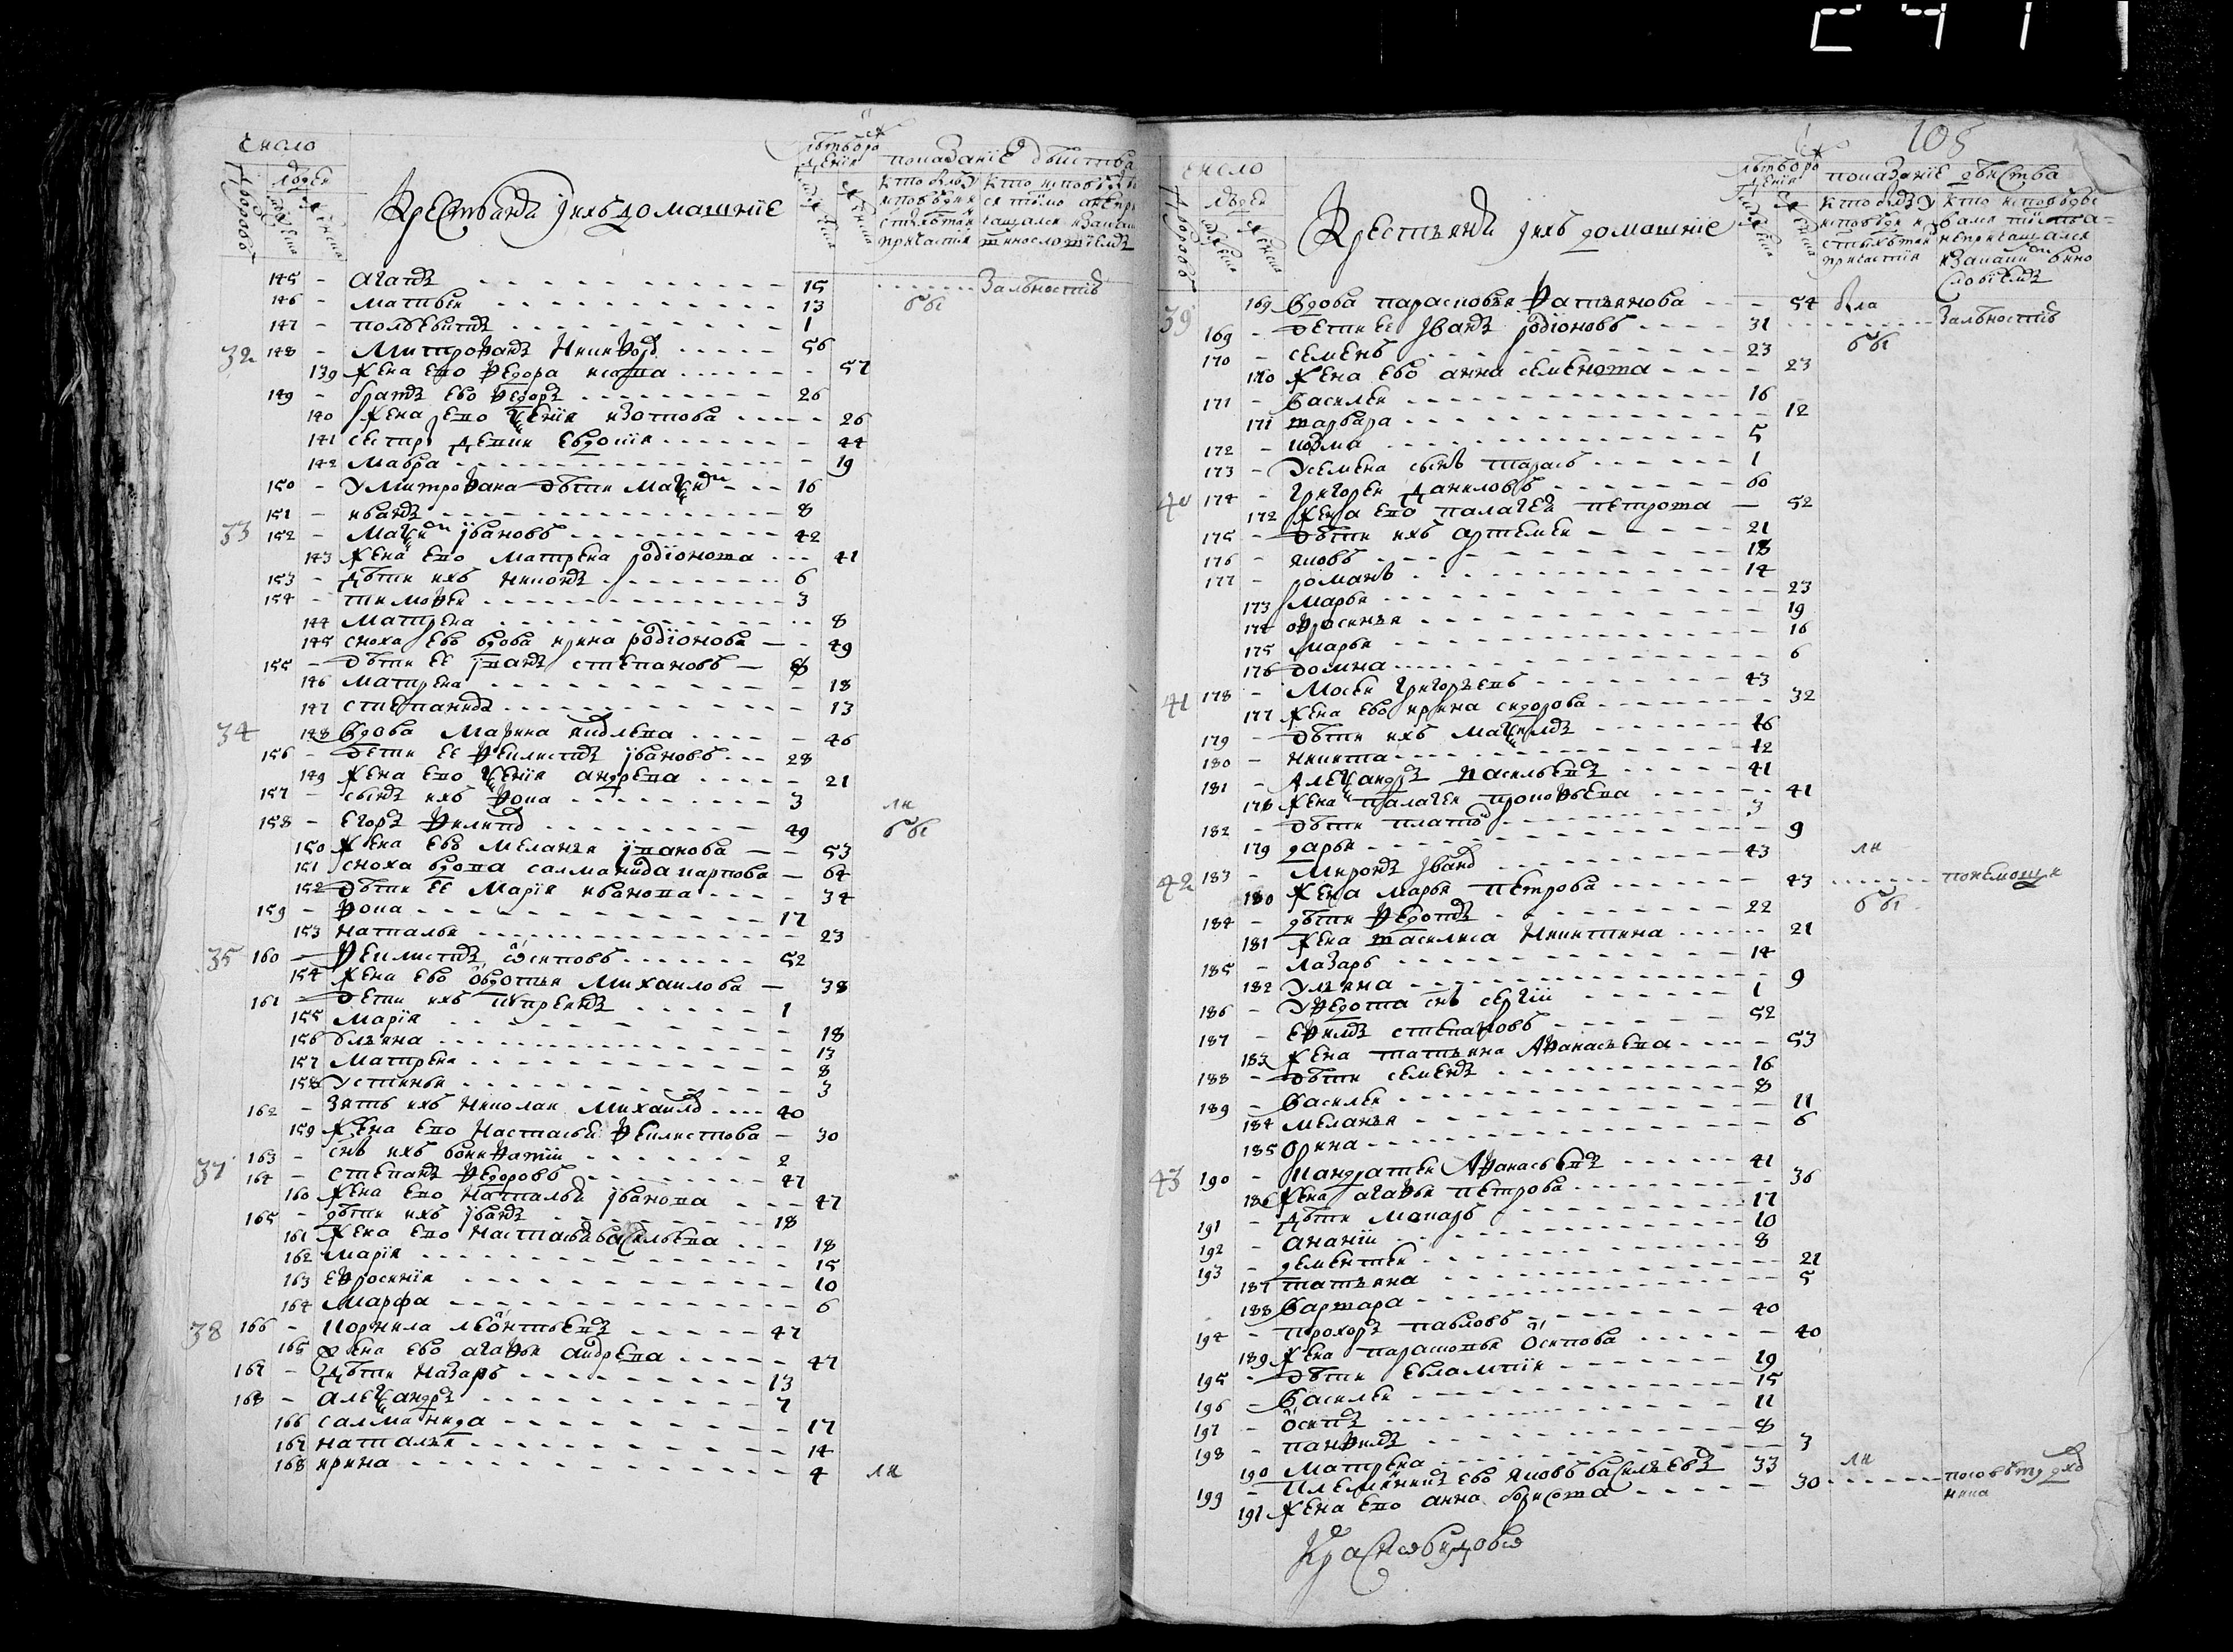 число
людей
дворовъ
Крестьяня и ихъ домашние
лѣтъ от рождения
показание дѣйства
145 - агапъ 15 За лѣностию
146 - матвѣи 13 бы
147 - полѣвитъ 1
32 148 - Митрофанъ Никифоръ 56
139 жена ево Федора исаева 57
149 - братъ ево Федоръ 26
140 жена ево Ѯения изотова 26
141 сестры девки Евдокия 44
142 Мавра 19
150 - У Митрофана дѣти Маѯимъ 16
151 - иванъ 8
33 152 - Маѯимъ Ивановъ 42
143 жена ево Матрена родионова 41
153 - дѣти ихъ никонъ 6
154 - тимофеи 3
144 Матрена 8
145 сноха ево вдова ирина родионова 49
155 - дѣти ее иванъ степановъ 8
146 Матрена 18
147 степанида 13
34 148 вдова Марина 46
156 - дети ее Филистъ Ивановъ 28
149 жена ево Ѯения андреева 21
157 - сынъ ихъ Фока 3 ли
158 - Егоръ Филипъ 49 бы
150 жена ево Меланья Иванова 53
151 сноха вдова саламанида карпова 64
152 дѣти ее Мария иванова 34
159 - Фока 17
153 наталья 23
35 160 - Филистъ осиповъ 52
154 жена ево овдотья Михаилова 38
161 - дети ихъ купреянъ 1
155 Мария 18
156 Ульяна 13
157 Матрена 8
158 Устинья 3
162 - зять ихъ Николаи Михаилъ 40
159 жена ево Настасья Филистова 30
163 - снъ ихъ вонифатии 2
37 164 - степанъ Федоровъ 47
160 жена ево Наталья Иванова 47
165 - дѣти ихъ Иванъ 18
161 жена ево Настасья васильева 18
162 Мария 15
163 Ефросиния 10
164 Марфа 6
38 166 - Корнила леонтьевъ 47
165 жена ево агафья андреева 47
167 - дѣти Назаръ 13
168 - алеѯандръ 7
166 саламанида 17
167 наталья 14
168 ирина 4 ли
105
число
людей
дворовъ
Крестьяня и ихъ домашние
лѣтъ от рождения
показание дѣиства
39 169 Вдова парасковья Фатьянова 54 была
169 - дети ее Иванъ родионовъ 31 За лѣностию
170 - семенъ 23 бы
170 жена ево анна семенова 23
171 - василеи 16
171 варвара 12
172 - козма 5
173 - У семена сынъ тарасъ 1
40 174 - Григореи Даниловъ 60
172 жена ево палагея петрова 52
175 - дѣти ихъ артемеи 21
176 - яковъ 18
177 - романъ 14
173 Марья 23
174 офросинья 19
175 Марья 16
176 домна 6
41 178 - Мосеи Григорьевъ 43
177 жена ево ирина сидорова 32
179 - дѣти ихъ Маѯимъ 16
180 - никита 12
181 - Алеѯандръ васильевъ 41
178 жена палагея прокофьева 41
182 - дѣти платонъ 3
179 дарья 9
42 183 - Миронъ Иванъ 43 ли
180 жена марья петрова 43 по немощи
184 - дѣти Федотъ 22 бы
181 жена василиса Никитина 21
185 - Лазарь 14
182 Ульяна 9
186 - У Федота снъ сергии 1
187 - Ефимъ степановъ 52
183 жена татьяна Афанасьева 53
188 - дѣти семенъ 16
189 - василеи 8
184 меланья 11
185 орина 6
43 190 - Кандратеи Афанасьевъ 41
186 жена агафья петрова 36
191 - дѣти Макаръ 17
192 - ананiи 10
193 - дементеи 8
187 татьяна 21
188 варвара 5
194 - прохоръ павловъ 40
189 жена парасковья осипова 40
195 - дѣти Евлампии 19
196 - василеи 15
197 - осипъ 11
198 - панфилъ 8
190 Матрена 3
199 - племянникъ ево яковъ васильевъ 33 ли
191 жена ево анна борисова 30
Краснобидовѡ